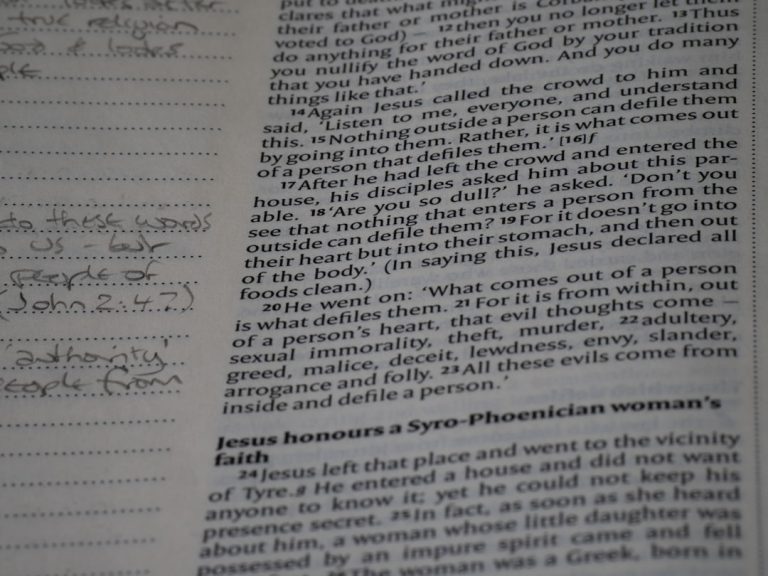 true religion
ple
to these words
us - but
people of
(John 2:47)
'authority'
people from
put to death
clares that what might
their father or mother is Corban
voted to God) – 12then you no longer let them
do anything for their father or mother. 13Thus
you nullify the word of God by your tradition
that you have handed down. And you do many
things like that.'
14Again Jesus called the crowd to him and
said, 'Listen to me, everyone, and understand
this. 15Nothing outside a person can defile them
by going into them. Rather, it is what comes out
of a person that defiles them.' [16]f
17After he had left the crowd and entered the
house, his disciples asked him about this par-
able. 18'Are you so dull?' he asked. 'Don't you
see that nothing that enters a person from the
outside can defile them? 19For it doesn't go into
their heart but into their stomach, and then out
of the body.' (In saying this, Jesus declared all
foods clean.)
20He went on: 'What comes out of a person
is what defiles them. 21For it is from within, out
of a person's heart, that evil thoughts come –
sexual immorality, theft, murder, 22adultery,
greed, malice, deceit, lewdness, envy, slander,
arrogance and folly. 23All these evils come from
inside and defile a person.'
Jesus honours a Syro-Phoenician woman's
faith
24Jesus left that place and went to the vicinity
of Tyre.g He entered a house and did not want
anyone to know it; yet he could not keep his
presence secret. 25In fact, as soon as she heard
about him, a woman whose little daughter was
possessed by an impure spirit came and fell
26The woman was a Greek, born in